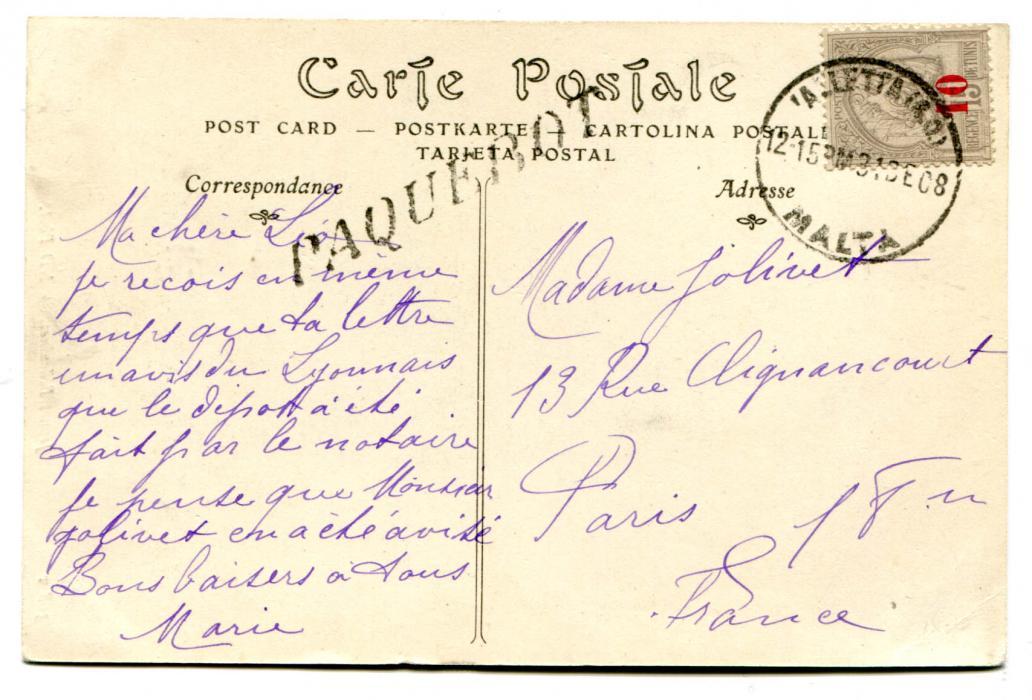 Carte Postale
POST CARD — POSTKARTE — CARTOLINA POSTALE
TARJETA POSTAL
Correspondance
Adresse
PAQUEBOT
VALLETTA
12·15PM 31 DE 08
MALTA
10
15
POSTES
REGENCE DE TUNIS
Ma chère Léo
je recois en même
temps que ta lettre
un avis du Lyonnais
que le dépott à été
fait par le notaire
Je pense que Monsieur
Jolivet en a été avisé
Bons baisers à tous
Marie
Madame Jolivet
13 Rue Clignancourt
Paris
France